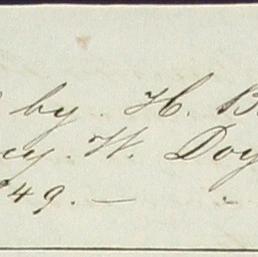 by. H. B
cy. W. Doy
49. —